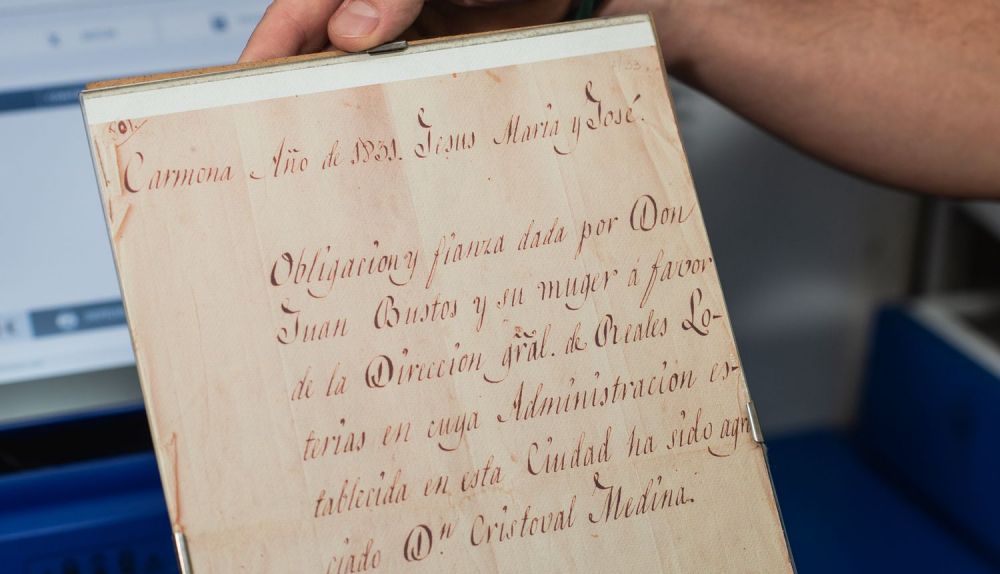 Carmona Año de 1831. Jesus Maria y José.
Obligacion y fianza dada por Don
Juan Bustos y su muger á favor
de la Direccion gr̃al. de Reales Lo-
terias en cuya Administracion es-
tablecida en esta Ciudad ha sido agra
ciado Dn Cristoval Medina.